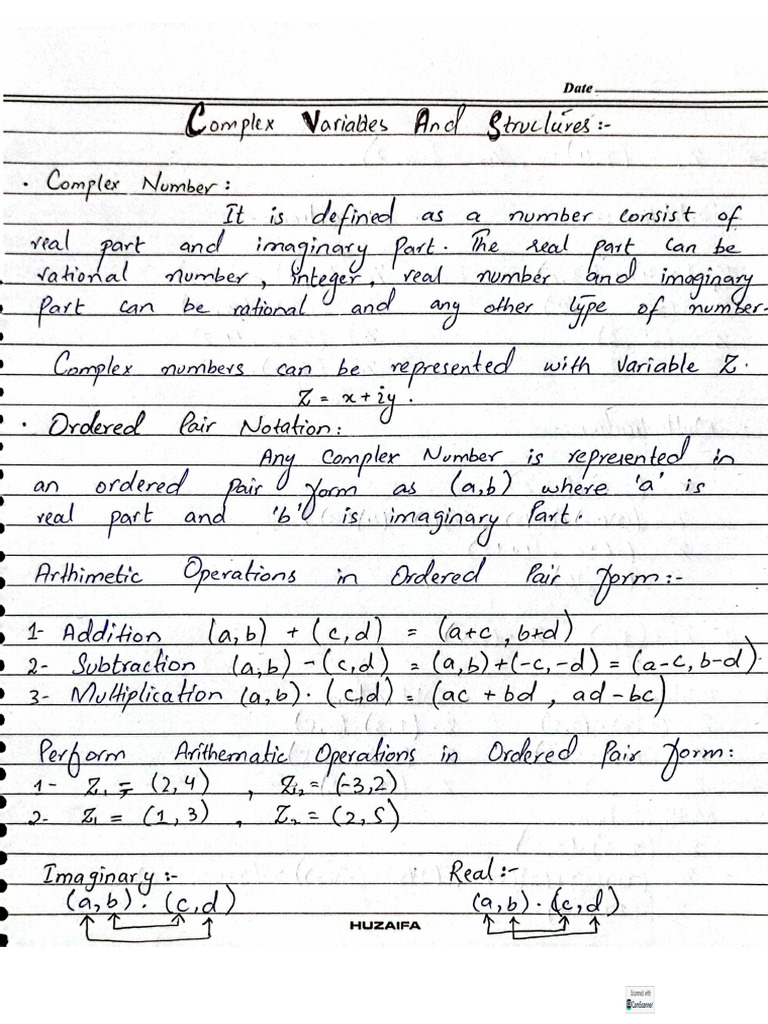 Date
Complex Variables And Structures:-
· Complex Number:
It is defined as a number consist of
real part and imaginary part. The real part can be
rational number, integer, real number and imaginary
part can be rational and any other type of number.
Complex numbers can be represented with variable Z.
Z = x + iy.
· Ordered Pair Notation:
Any Complex Number is represented in
an ordered pair form as (a,b) where 'a' is
real part and 'b' is imaginary Part.
Arthimetic Operations in Ordered Pair form:-
1- Addition (a,b) + (c,d) = (a+c, b+d)
2- Subtraction (a,b) - (c,d) = (a,b)+(-c,-d) = (a-c, b-d).
3- Multiplication (a,b) · (c,d) = (ac + bd, ad - bc)
Perform Arithematic Operations in Ordered Pair form:
1- Z₁ = (2,4) , Z₂ = (-3,2)
2- Z₁ = (1,3) , Z₂ = (2,5)
Imaginary:- Real:-
(a,b) · (c,d) (a,b) · (c,d)
HUZAIFA
Scanned with
CamScanner